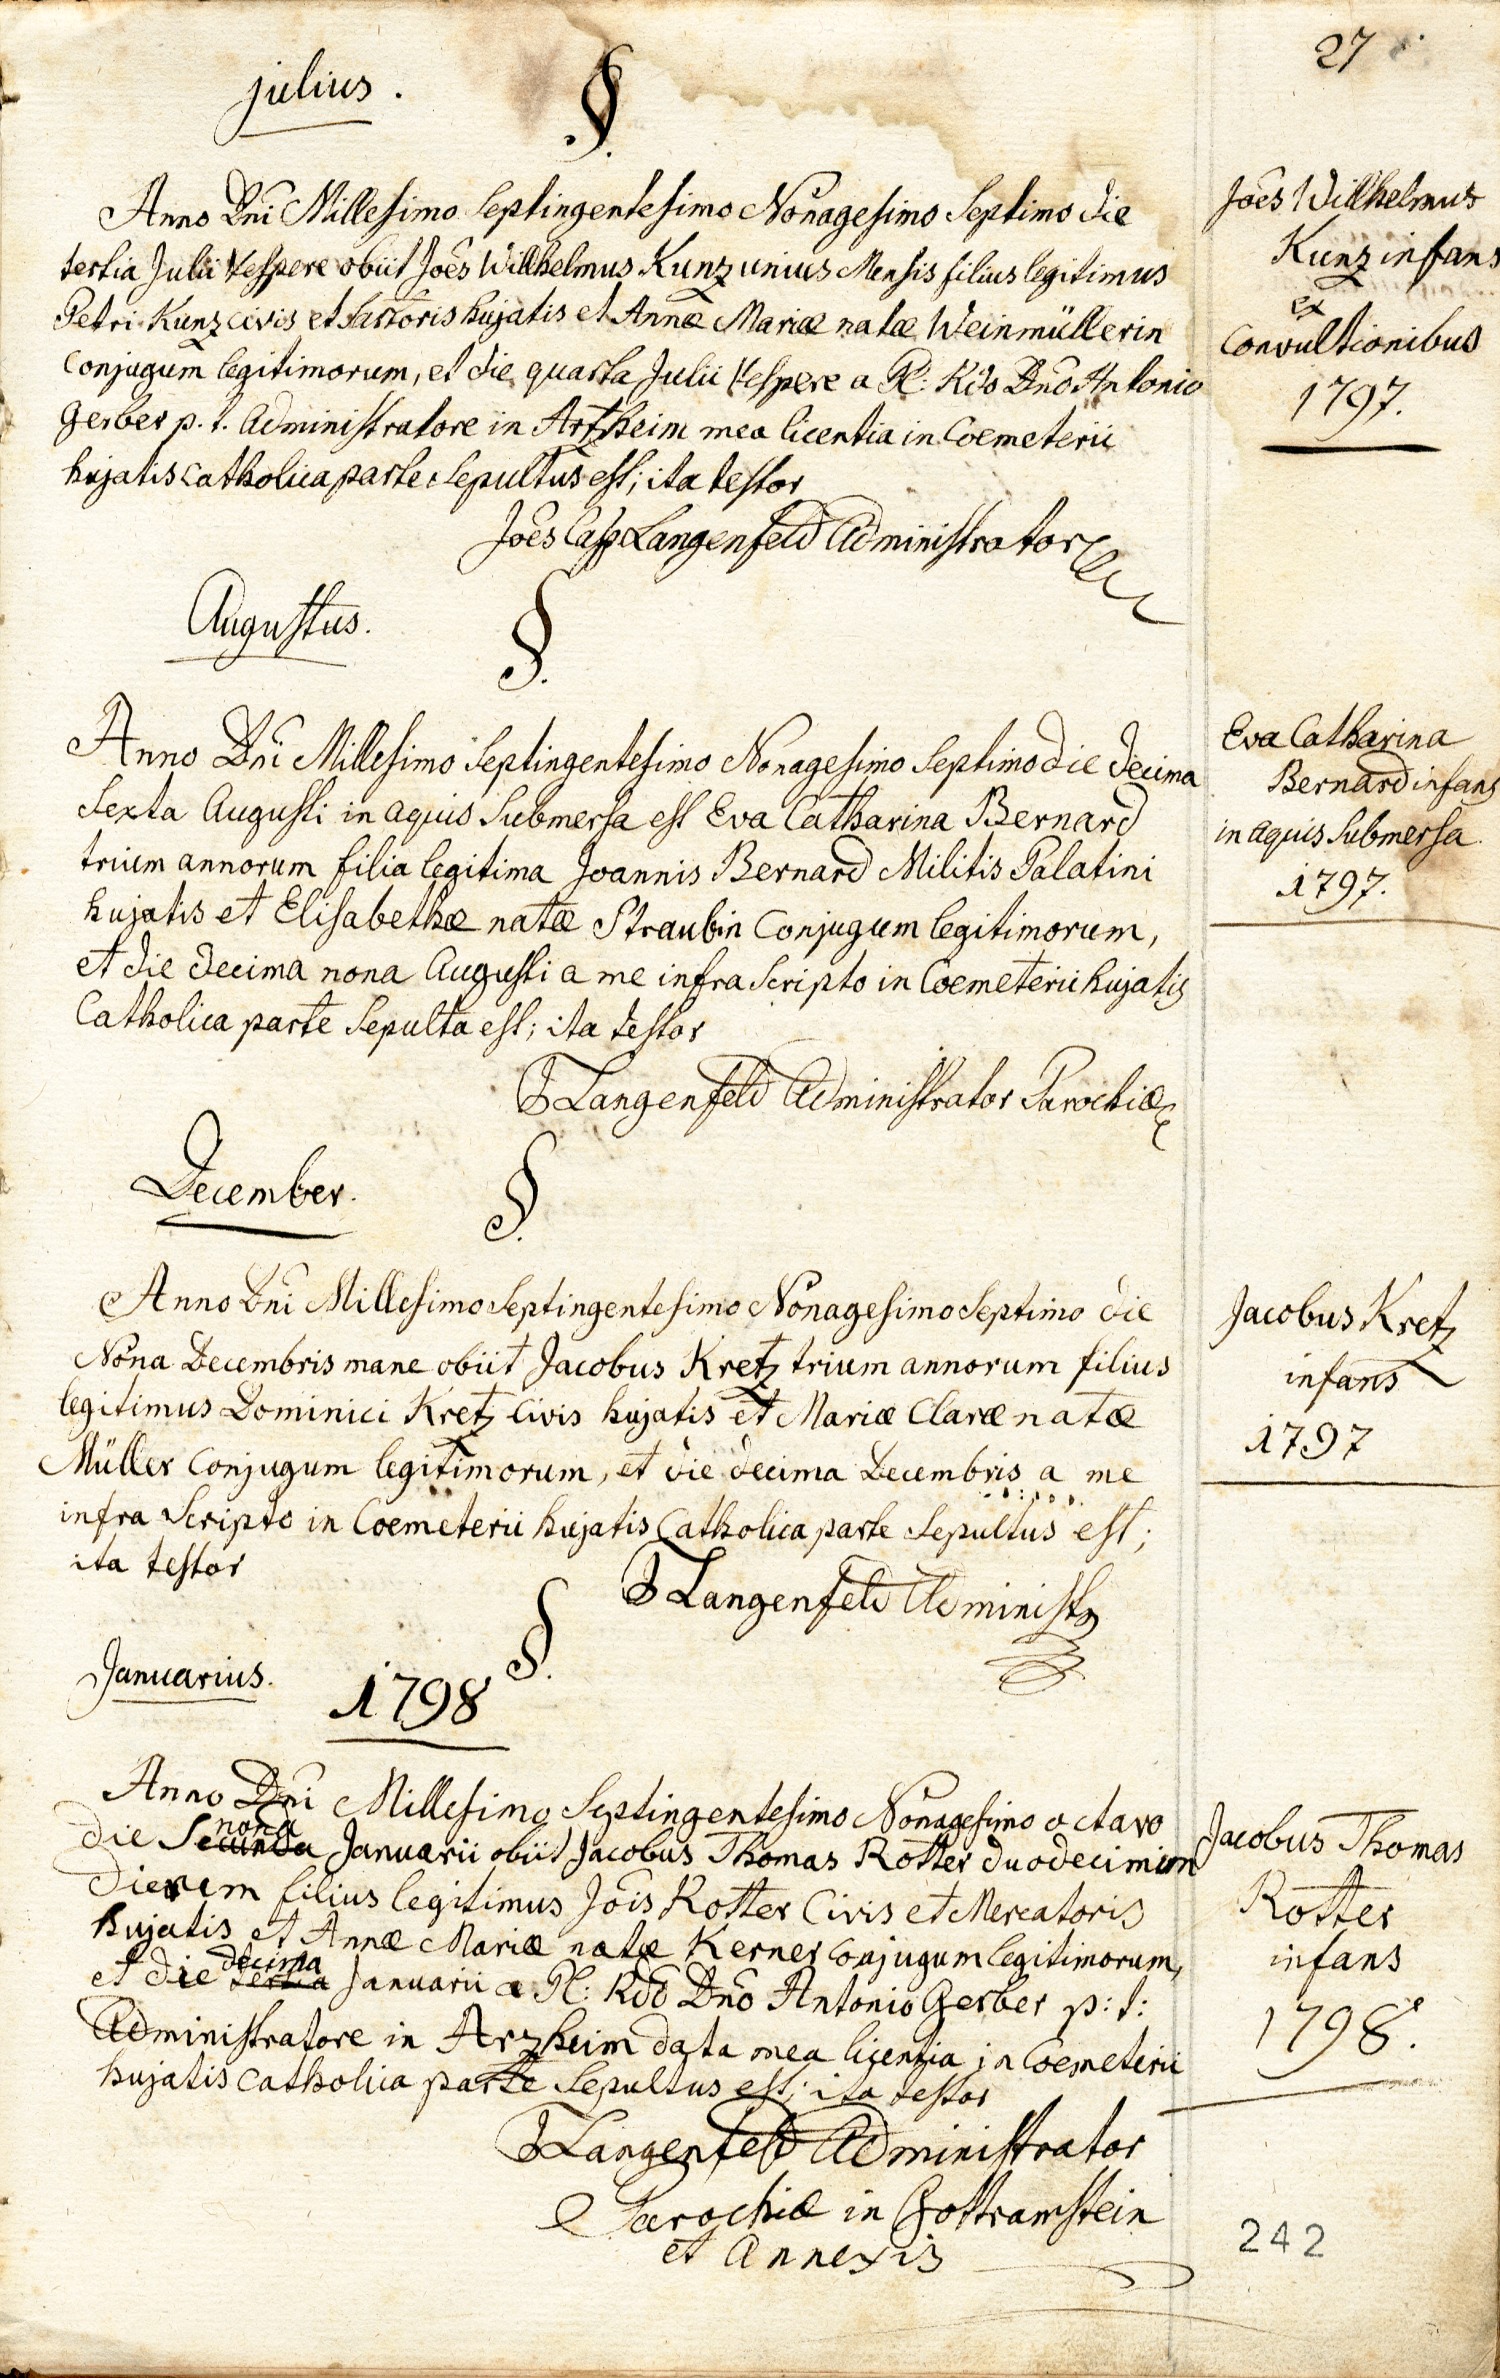 27
julius.
§.
Anno Dn̄i Millesimo Septingentesimo Nonagesimo Septimo die
tertia Julii Vespere obiit Joēs Willhelmus Kunz unius Mensis filius legitimus
Petri Kunz civis et Sartoris hujatis et Annæ Mariæ natæ Weinmüllerin
Conjugum legitimorum, et die quarta Julii Vespere a Pl: Rdo Dn̄o Antonio
Gerber p. t. Administratore in Artzheim mea licentia in Coemeterii
hujatis catholica parte Sepultus est; ita testor
Joēs Casp Langenfeld Administrator
Joēs Willhelmus
Kunz infans
ex
Convultionibus
1797.
Augustus.
§.
Anno Dn̄i Millesimo Septingentesimo Nonagesimo Septimo die decima
Sexta Augusti in aquis Submersa est Eva Catharina Bernard
trium annorum filia legitima Joannis Bernard Militis Palatini
hujatis et Elisabethæ natæ Straubin Conjugum legitimorum,
et die decima nona Augusti a me infra Scripto in Coemeterii hujatis
Catholica parte Sepulta est; ita testor
J Langenfeld Administrator Parochiæ
Eva Catharina
Bernard infans
in aquis Submersa
1797.
December.
§.
Anno Dn̄i Millesimo Septingentesimo Nonagesimo Septimo die
Nona Decembris mane obiit Jacobus Kretz trium annorum filius
legitimus Dominici Kretz Civis hujatis et Mariæ Claræ natæ
Müller Conjugum legitimorum, et die decima Decembris a me
infra Scripto in Coemeterii hujatis Catholica parte Sepultus est;
ita testor
J Langenfeld Administr
Jacobus Kretz
infans
1797
§.
Januarius.
1798
Anno Dn̄i Millesimo Septingentesimo Nonagesimo octavo
nona
die Secunda Januarii obiit Jacobus Thomas Rotter duodecimum
Dierum filius legitimus Jōis Rotter Civis et Mercatoris
hujatis et Annæ Mariæ natæ Kerner Conjugum legitimorum,
decima
et die tertia Januarii a Pl: Rdō Dn̄o Antonio Gerber p: t:
Administratore in Arzheim data mea licentia in Coemeterii
hujatis catholica parte Sepultus est; ita testor
J Langenfeld Administrator
Parochiæ in Gottramstein
et Annexis
Jacobus Thomas
Rotter
infans
1798.
242